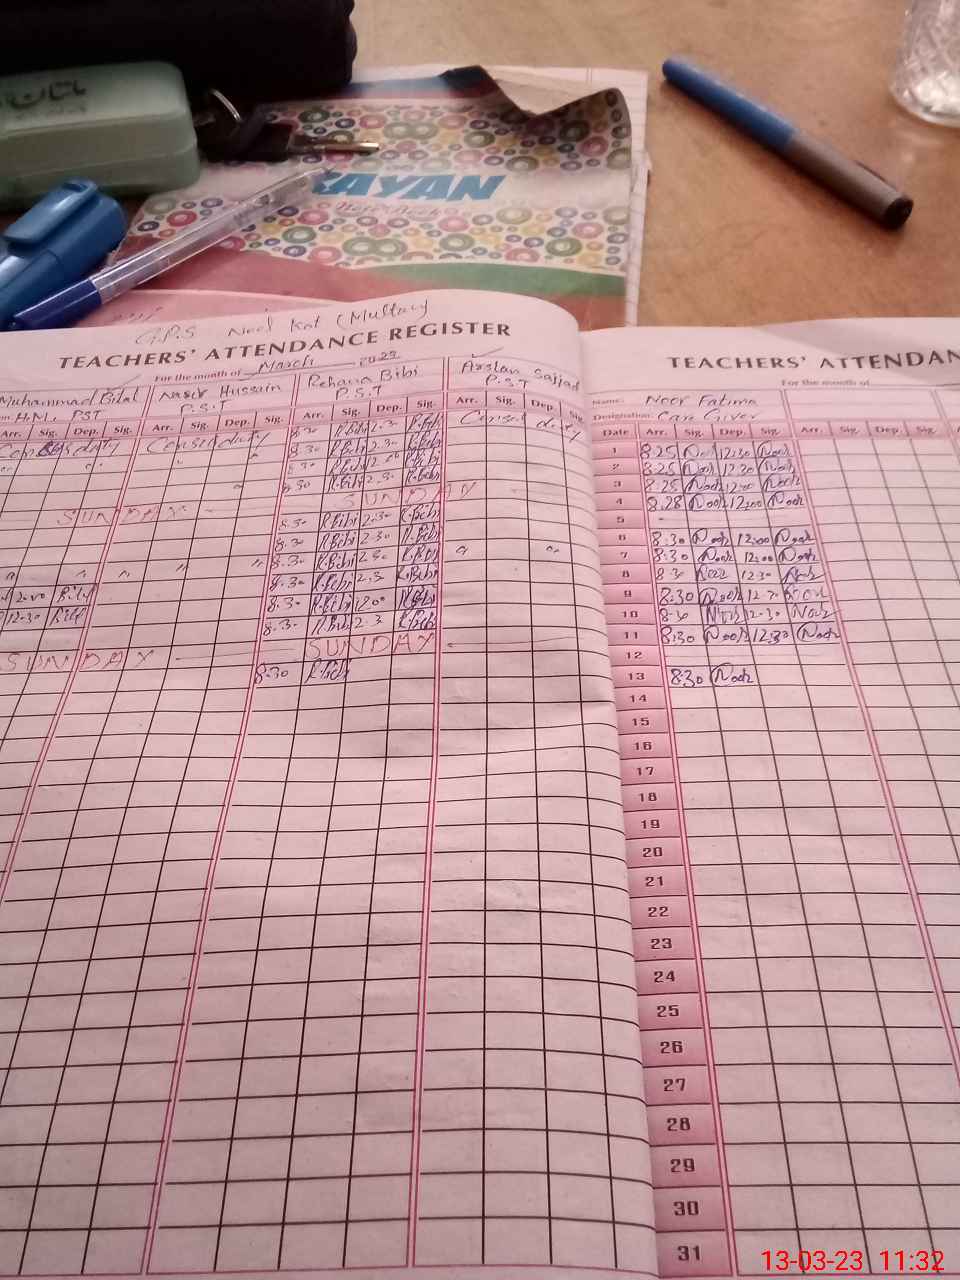 RAYAN
Note Book
G.P.S Neel Kot (Multan)
TEACHERS' ATTENDANCE REGISTER
For the month of March
Muhammad Bilal Nasir Hussain Rehana Bibi Arslan Sajjad
H.M. PST P.S.T P.S.T P.S.T
Arr. Sig. Dep. Sig. Arr. Sig. Dep. Sig. Arr. Sig. Dep. Sig. Arr. Sig. Dep. Sig.
Census duty Census duty 8:30 R.Bibi 2.30 R.Bibi Census duty
8.30 R.Bibi 2.30 R.Bibi
8.30 R.Bibi R.Bibi
8.30 R.Bibi 2.30 R.Bibi
SUNDAY SUNDAY
8.30 R.Bibi 2.30 R.Bibi
8.30 R.Bibi 2.30 R.Bibi
8.30 R.Bibi 2.30 R.Bibi
8.30 R.Bibi 2.30 R.Bibi
12.00 Bilal 8.30 R.Bibi R.Bibi
12.30 Bilal 8.30 R.Bibi 2.3 R.Bibi
SUNDAY SUNDAY
8.30 R.Bibi
TEACHERS' ATTENDAN
For the month of
Name: Noor Fatima
Designation: Care Giver
Date Arr. Sig. Dep. Sig. Arr. Sig. Dep. Sig.
1 8.25 Noor 12:30 Noor
2 8.25 Noor 12.30 Noor
3 8.25 Noor Noor
4 8.28 Noor 12:00 Noor
5
6 8:30 Noor 12:00 Noor
7 8:30 Noor 12:00 Noor
8 8.30 Noor 12.30 Noor
9 8:30 Noor 12.30 Noor
10 8:30 Noor 12.30 Noor
11 8:30 Noor 12:30 Noor
12
13 8:30 Noor
14
15
16
17
18
19
20
21
22
23
24
25
26
27
28
29
30
31
13-03-23 11:32